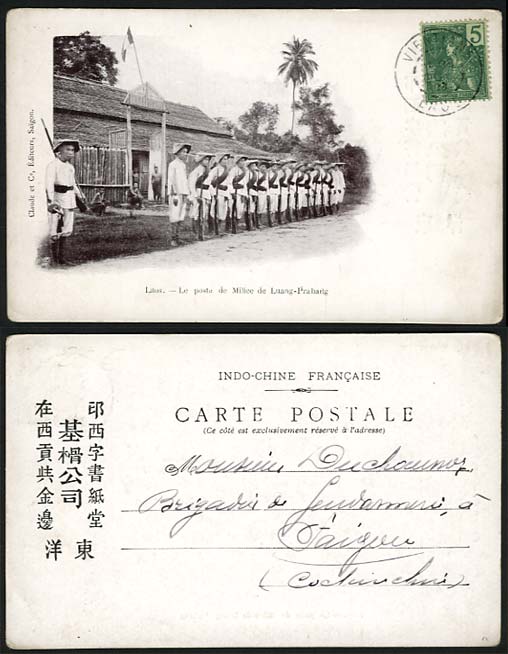 5
VIE
Claude et Cie, Éditeurs, Saigon.
Laos. — Le poste de Milice de Luang-Prabang
INDO-CHINE FRANÇAISE
CARTE POSTALE
(Ce côté est exclusivement réservé à l'adresse)
Monsieur Duchaunoy
Brigadier de Gendarmerie, à
Saïgon
(Cochinchine)
印西字書紙堂 東
基楈公司
在西貢共金邊 洋